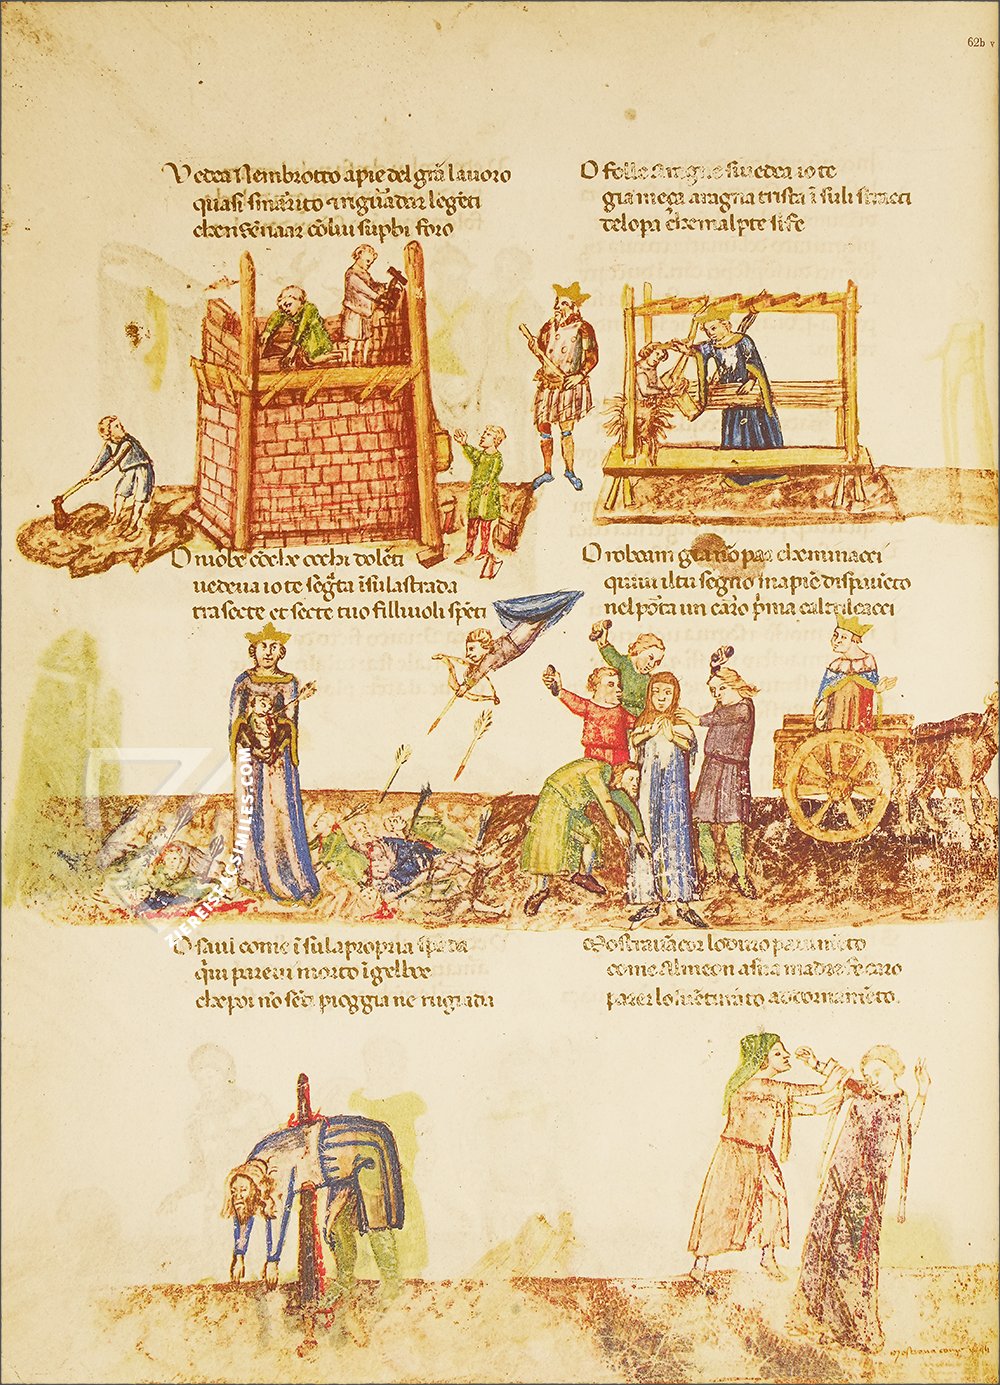 62b v
Vedea Nembrotto apie del grā lauoro
quasi smarito & riguādar le gēti
che n sēnaar cō lui supbi foro
O folle aragne si uedea io te
gia meça aragna trista ī su li stracci
de lopa che mal p te si fe
O niobe cō che occhi dolēti
uedeua io te segta ī su la strada
tra secte et secte tuo filliuoli spēti
O roboam gia nō par che minacci
quiui il tu segno ma piē di spauēto
nel porta un caro pma caltri lcacci
O saul come ī su la propria spada
qui pareui morto ī gelboe
che poi nō sētí pioggia ne rugiada
Mostraua ācor lo duro pauimēto
come Almeon a sua madre fe caro
parer lo suēturato adornamēto.
Mostraua
ZIEREIS FACSIMILES.COM